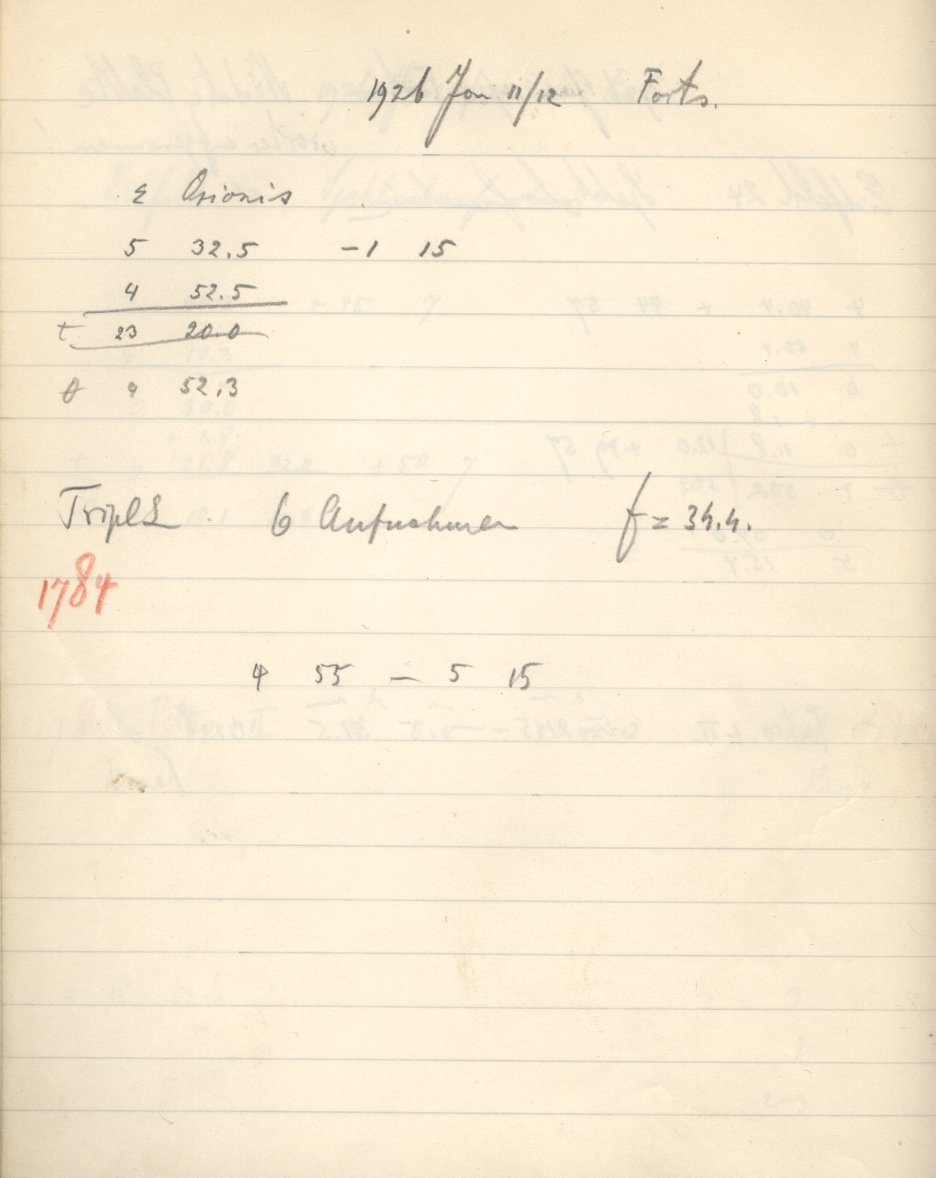 1926 Jan 11/12 Forts.
ε Orionis
5 32.5 -1 15
4 52.5
t 23 20.0
θ 4 52.3
Triplet 6 Aufnahmen f = 34.4.
1784
4 55 — 5 15